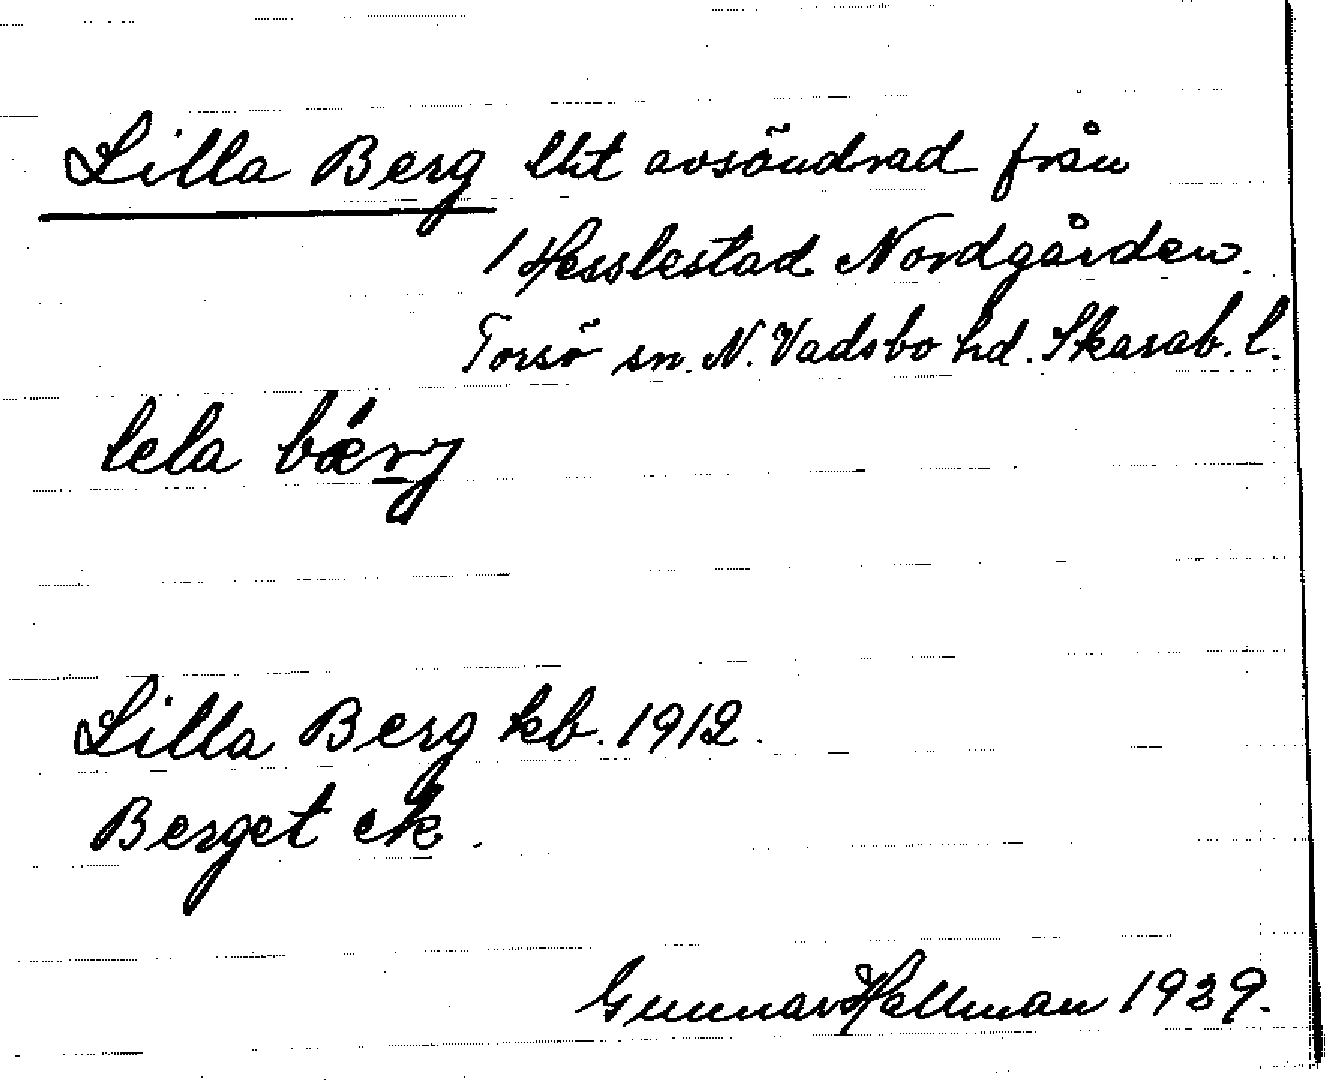 Lilla Berg lht avsöndrad från
1 Hesslestad Nordgården.
Torsö sn. N. Vadsbo hd. Skarab. l.
lela bǽrj
Lilla Berg kb. 1912.
Berget ek.
Gunnar Hallman 1939.